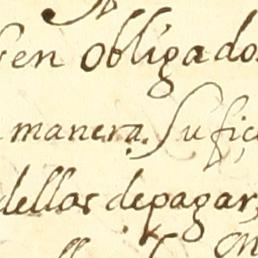 en obligados
manera sufiç
dellos de pagar